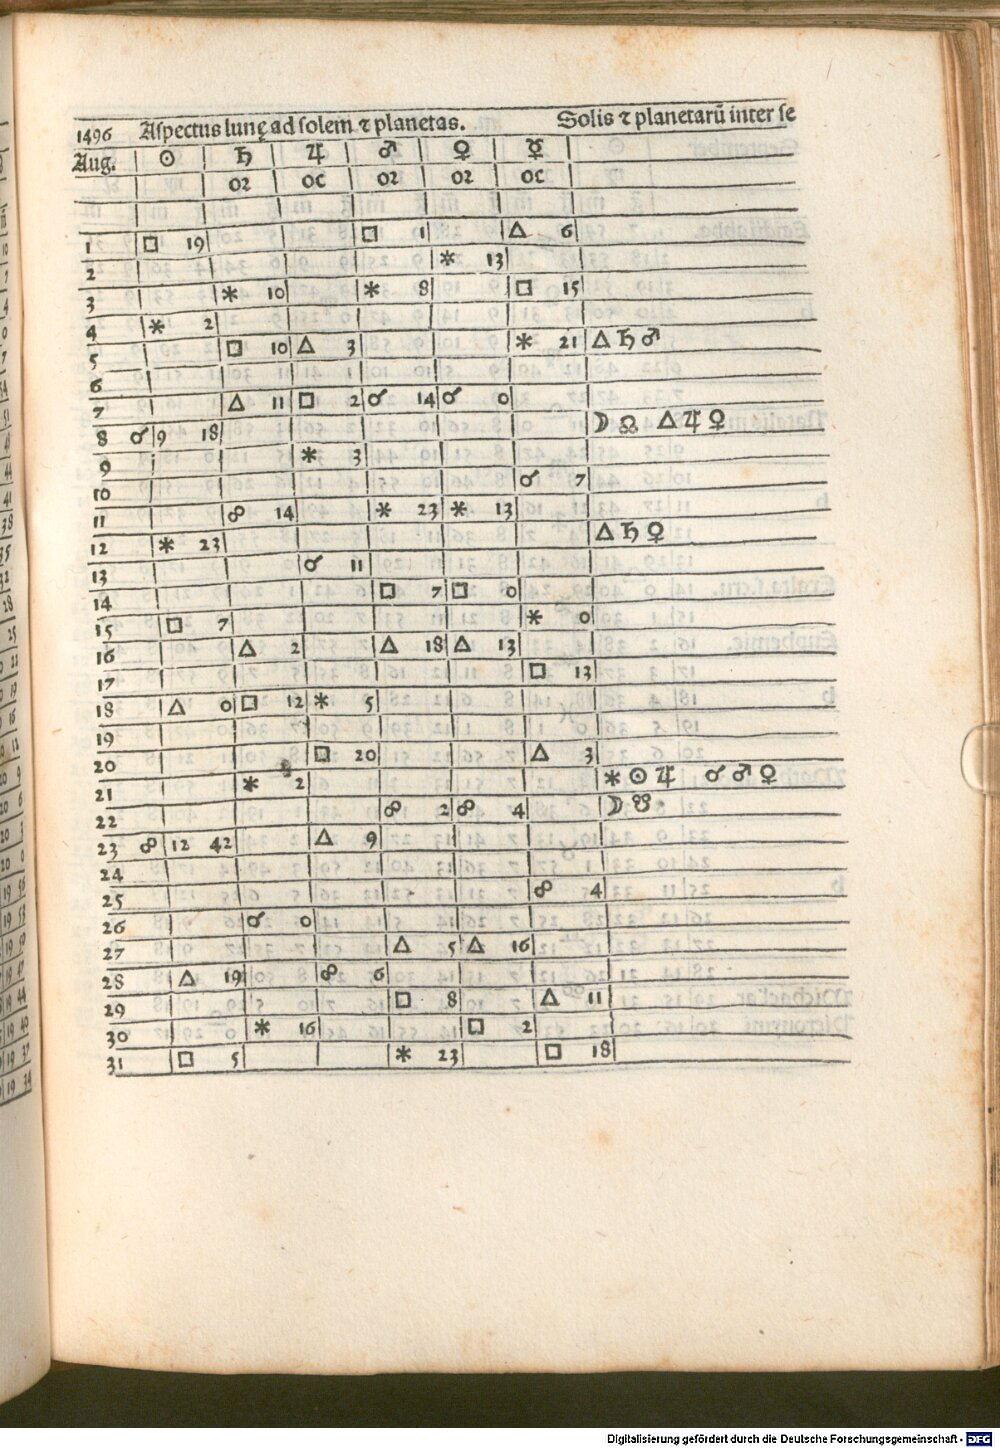 1496 Aspectus lunę ad solem ⁊ planetas. Solis ⁊ planetarū inter se
Aug. ☉ ♄ ♃ ♂ ♀ ☿
oꝛ oc oꝛ oꝛ oc
1 □ 19 □ 1 △ 6
2 ⚹ 13
3 ⚹ 10 ⚹ 8 □ 15
4 ⚹ 2
5 □ 10 △ 3 ⚹ 21 △ ♄ ♂
6
7 △ 11 □ 2 ☌ 14 ☌ 0
8 ☌ 9 18 ☽ ☊ △ ♃ ♀
9 ⚹ 3
10 ☌ 7
11 ☍ 14 ⚹ 23 ⚹ 13
12 ⚹ 23 △ ♄ ♀
13 ☌ 11
14 □ 7 □ 0
15 □ 7 ⚹ 0
16 △ 2 △ 18 △ 13
17 □ 13
18 △ 0 □ 12 ⚹ 5
19
20 □ 20 △ 3
21 ⚹ 2 ⚹ ☉ ♃ ☌ ♂ ♀
22 ☍ 2 ☍ 4 ☽ ☋
23 ☍ 12 42 △ 9
24
25 ☍ 4
26 ☌ 0
27 △ 5 △ 16
28 △ 19 ☍ 6
29 □ 8 △ 11
30 ⚹ 16 □ 2
31 □ 5 ⚹ 23 □ 18
Digitalisierung gefördert durch die Deutsche Forschungsgemeinschaft - DFG